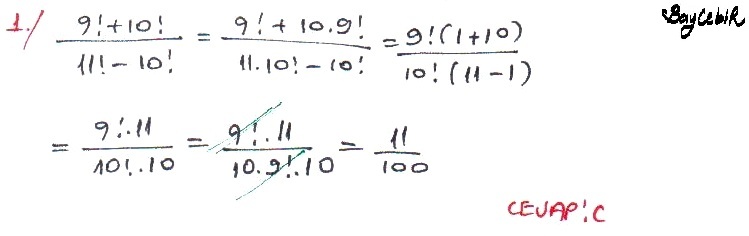 BayCebiR
1./ (9!+10!)/(11!-10!) = (9!+10.9!)/(11.10!-10!) = 9!(1+10)/10!(11-1)
= 9!.11/10!.10 = 9!.11/10.9!.10 = 11/100
CEVAP: C